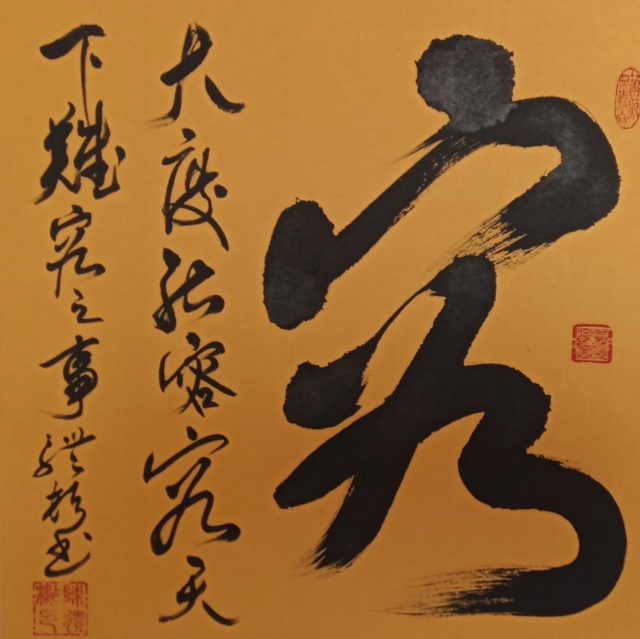 容
大度能容容天
下難容之事 书